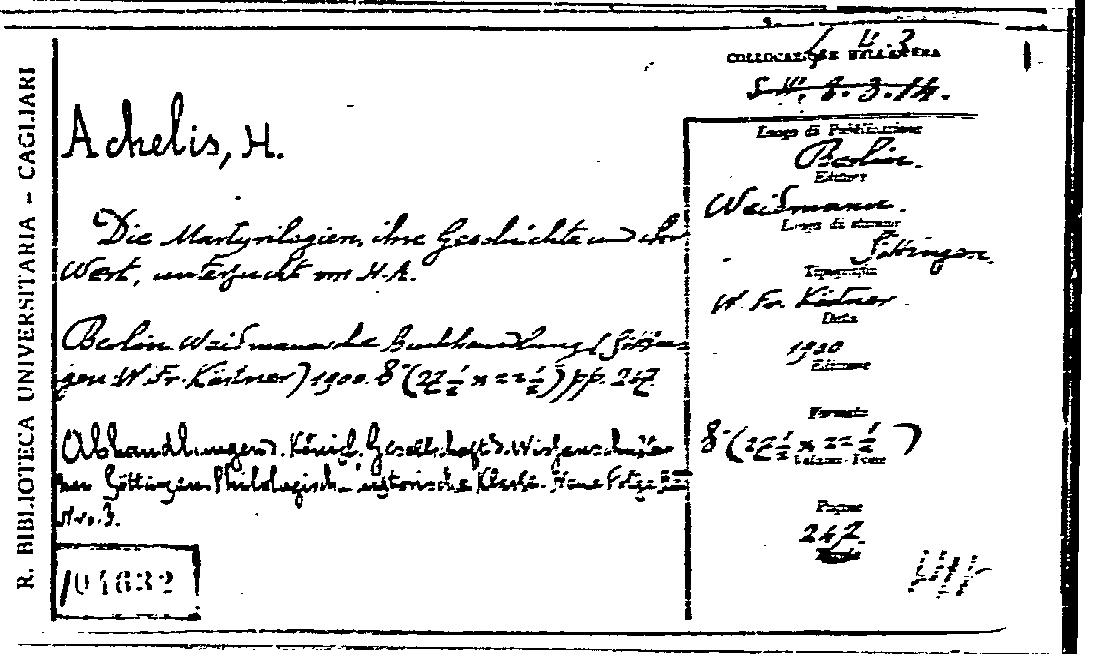 R. BIBLIOTECA UNIVERSITARIA – CAGLIARI
COLLOCAZIONE
S.W. 8.3.14.
Achelis, H.
Die Martyrilogien, ihre Geschichte und ihr
Wert, untersucht von H.A.
Berlin Weidmannsche Buchhandlung (Göttin-
gen W. Fr. Kästner) 1900. 8° (27 ½ x 22 ½) pp. 247
Abhandlungen d. Königl. Gesellschaft d. Wissenschaften
zu Göttingen Philologisch-historische Klasse. Neue Folge
Nro. 3.
104632
Luogo di Pubblicazione
Berlin.
Editore
Weidmann.
Luogo di stampa
Göttingen.
Tipografia
W. Fr. Kästner
Data
1900
Edizione
Formato
8° (27 ½ x 22 ½)
Pagine
247